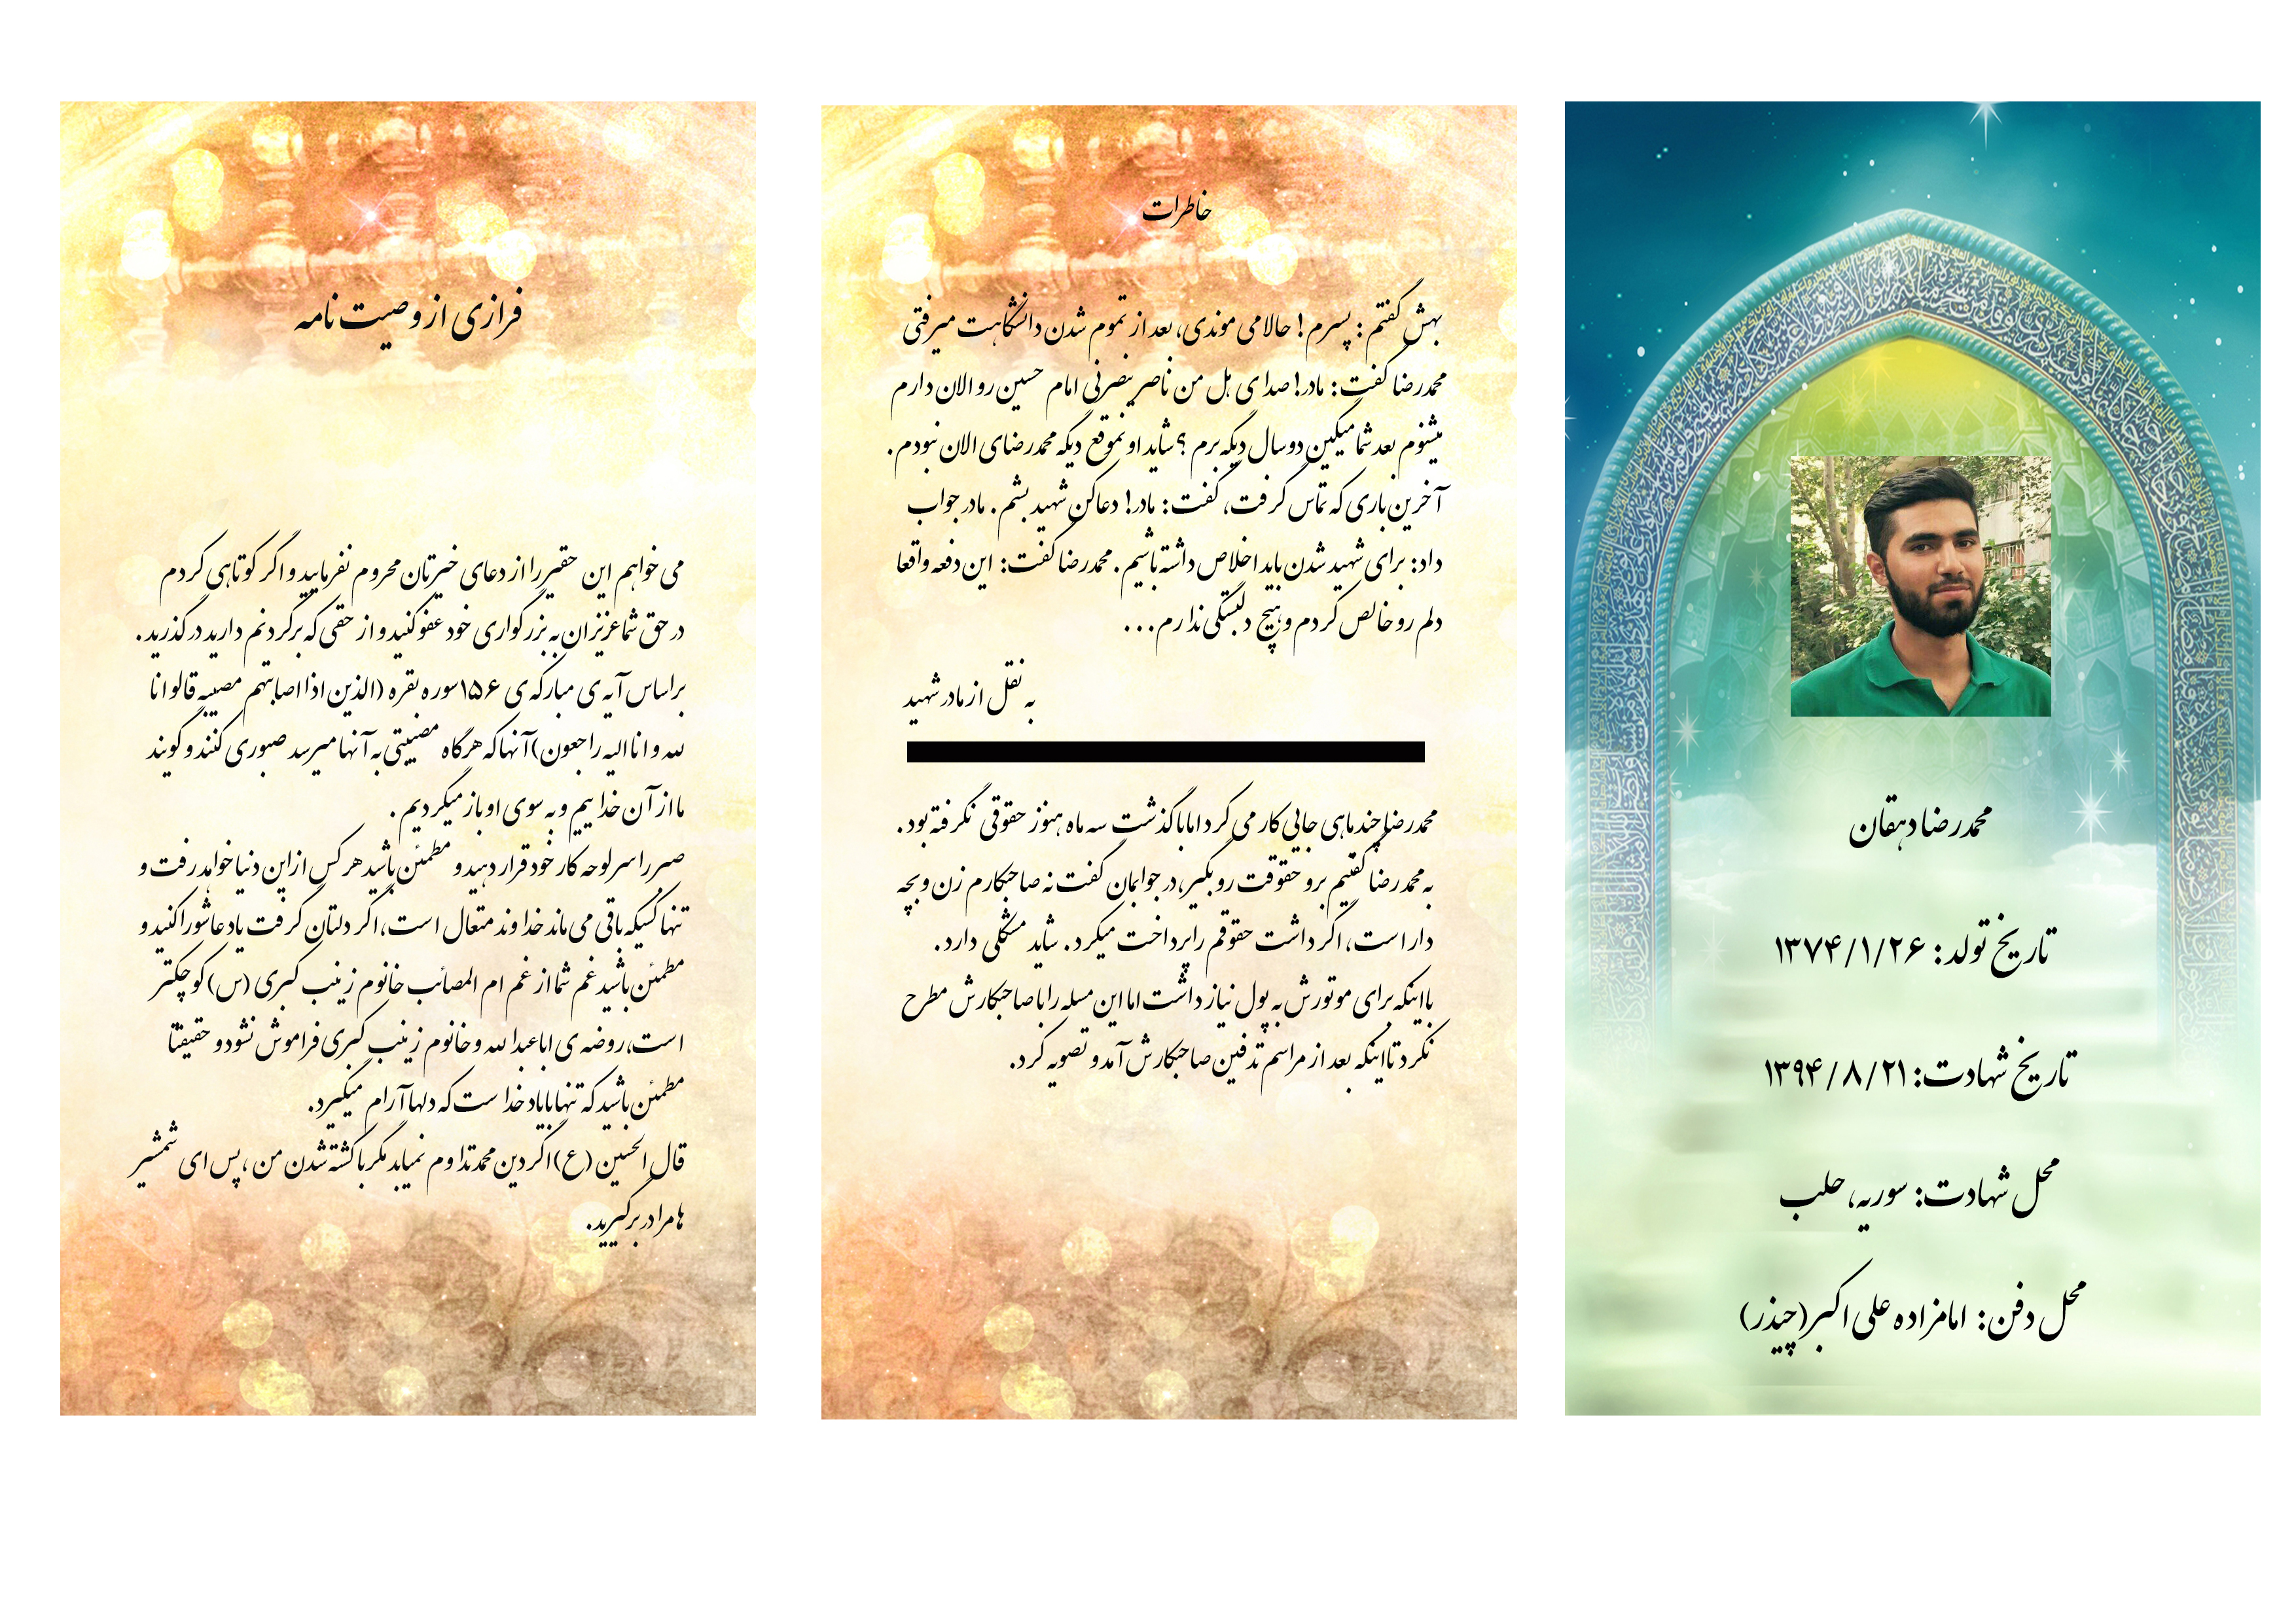 محمدرضا دهقان
تاریخ تولد: ۱۳۷۴/۱/۲۶
تاریخ شهادت: ۱۳۹۴/۸/۲۱
محل شهادت: سوریه، حلب
محل دفن: امامزاده علی اکبر(چیذر)
خاطرات
بهش گفتم : پسرم ! حالا می موندی، بعد از تموم شدن دانشگاهت میرفتی
محمدرضا گفت : مادر! صدای هل من ناصر ینصرنی امام حسین رو الان دارم
میشنوم بعد شما میگین دوسال دیگه برم ؟ شاید اونموقع دیگه محمدرضای الان نبودم .
آخرین باری که تماس گرفت، گفت : مادر! دعا کن شهید بشم . مادر جواب
داد: برای شهید شدن باید اخلاص داشته باشیم . محمدرضا گفت: این دفعه واقعا
دلم رو خالص کردم و هیچ دلبستگی ندارم...
به نقل از مادر شهید
محمدرضا چند ماهی جایی کار می کرد اما با گذشت سه ماه هنوز حقوقی نگرفته بود .
به محمدرضا گفتیم برو حقوقت رو بگیر، در جوابمان گفت نه صاحبکارم زن و بچه
دار است، اگر داشت حقوقم را پرداخت میکرد . شاید مشکلی دارد .
با اینکه برای موتورش به پول نیاز داشت اما این مسله را با صاحبکارش مطرح
نکرد تا اینکه بعد از مراسم تدفین صاحبکارش آمد و تصویه کرد.
فرازی از وصیت نامه
می خواهم این حقیر را از دعای خیرتان محروم نفرمایید و اگر کوتاهی کردم
در حق شما عزیزان به بزرگواری خود عفو کنید و از حقی که برگردنم دارید درگذرید .
براساس آیه ی مبارکه ی ۱۵۶ سوره بقره (الذین اذا اصابتهم مصیبه قالو انا
لله و انا الیه راجعون) آنها که هرگاه مصیبتی به آنها میرسد صبوری کنند و گویند
ما از آن خداییم و به سوی او باز میگردیم .
صبر را سرلوحه کار خود قرار دهید و مطمئن باشید هر کس از این دنیا خواهد رفت و
تنها کسیکه باقی می ماند خداوند متعال است، اگر دلتان گرفت یاد عاشورا کنید و
مطمئن باشید غم شما از غم ام المصائب خانوم زینب کبری (س) کوچکتر
است، روضه ی اباعبدالله و خانوم زینب کبری فراموش نشود و حقیقتا
مطمئن باشید که تنها با یاد خداست که دلها آرام میگیرد.
قال الحسین (ع) اگر دین محمد تداوم نمیابد مگر با کشته شدن من ، پس ای شمشیر
ها مرا در برگیرید.